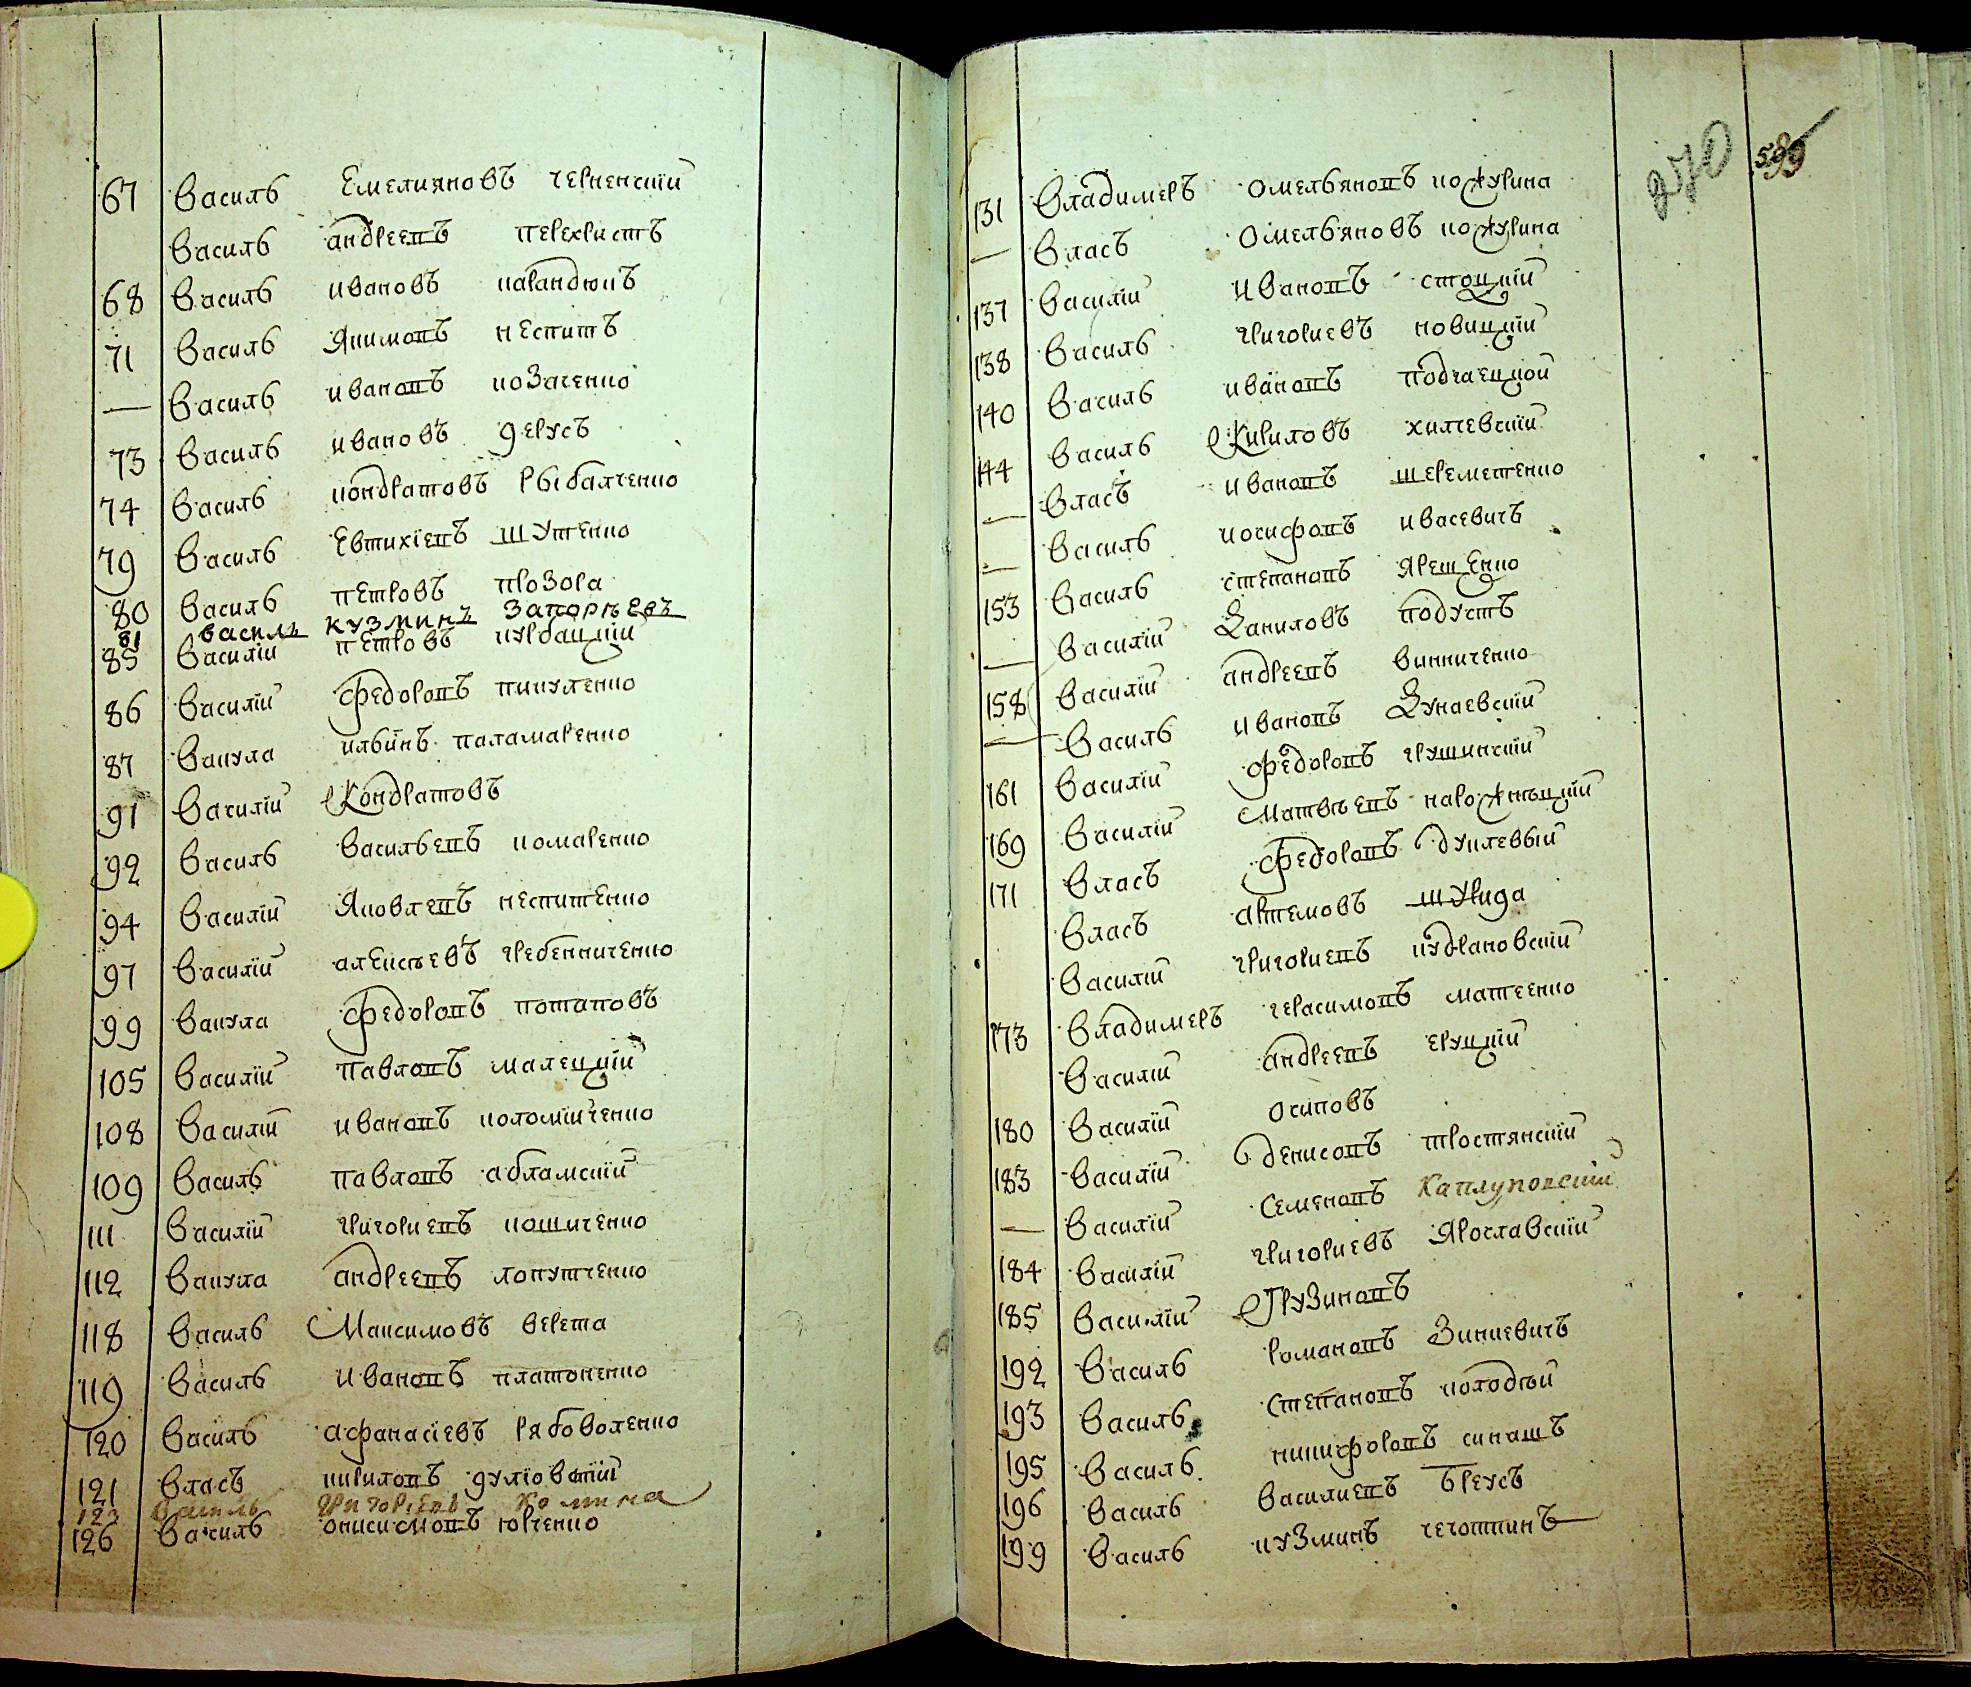 67 Василь Емелияновъ черненскїй
Василь андреевъ перехристъ
68 Василь ивановъ карандюкъ
71 Василь Якимовъ неспитъ
— Василь ивановъ козаченко
73 Василь ивановъ дерусъ
74 Василь кондратовъ рыбалченко
79 Василь Евтихїевъ шутенко
80 Василь петровъ прозора
81 василь кузминъ запорѣевъ
85 Василїй петровъ курбацкїй
86 Василїй федоровъ пикуленко
87 Вакула ильинъ паламаренко
91 Василїй Кондратовъ
92 Василь Васильевъ комаренко
94 Василїй Яковлевъ неспитенко
97 Василїй алексѣевъ гребенниченко
99 Вакула федоровъ потаповъ
105 Василїй павловъ малецкїй
108 Василїй ивановъ коломїйченко
109 Василь павловъ абламскїй
111 Василїй григориевъ кошиченко
112 Вакула андреевъ лопутченко
118 Василь Максимовъ верета
119 Василь ивановъ платоненко
120 Василь афанасїевъ рябоволенко
121 Власъ кириловъ
123 Василь григорїевъ комина
126 Василь онисимовъ юрченко
270 599
131 Владимеръ омельяновъ кожурина
— Власъ омельяновъ кожурина
137 Василїй ивановъ стоцкїй
138 Василь григориевъ новицкїй
140 Василь ивановъ подчаецкой
144 Василь Кириловъ хилчевскїй
— Власъ ивановъ шереметенко
— Василь иосифовъ ивасевичъ
153 Василь степановъ Ярещенко
— Василїй Даниловъ подустъ
158 Василїй андреевъ винниченко
— Василь ивановъ Дунаевскїй
161 Василїй федоровъ грушинскїй
169 Василїй Матвѣевъ нарожнѣцкїй
171 Власъ федоровъ дуплевый
Власъ артемовъ шурида
Василїй григориевъ кудрановскїй
173 Владимеръ герасимовъ матеенко
Василїй андреевъ еруцкїй
180 Василїй осиповъ
183 Василїй денисовъ тростянскїй
— Василїй семеновъ Каплуновскїй
184 Василїй григориевъ Ярославскїй
185 Василїй Грузиновъ
192 Василь романовъ Зинкевичъ
193 Василь степановъ колодѣй
195 Василь никифоровъ сикашъ
196 Василь василиевъ бреусъ
199 Василь кузминъ чегошкинъ